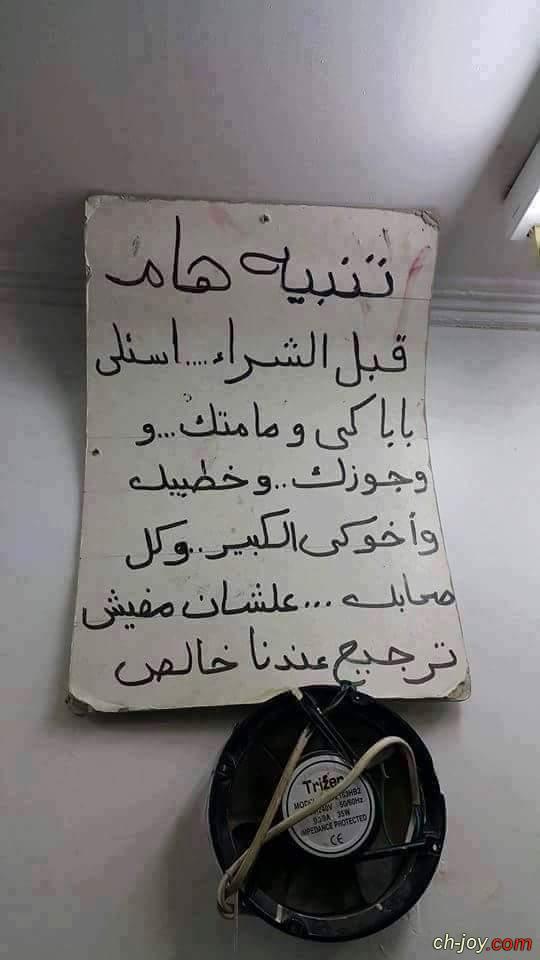 تنبيه هام
قبل الشراء....اسئلى
باباكى و مامتك...و
وجوزك..وخطيبك
وأخوكى الكبير..وكل
صحابك...علشان مفيش
ترجيع عندنا خالص
Trizen
50/60Hz
35W
IMPEDANCE PROTECTED
CE
ch-joy.com